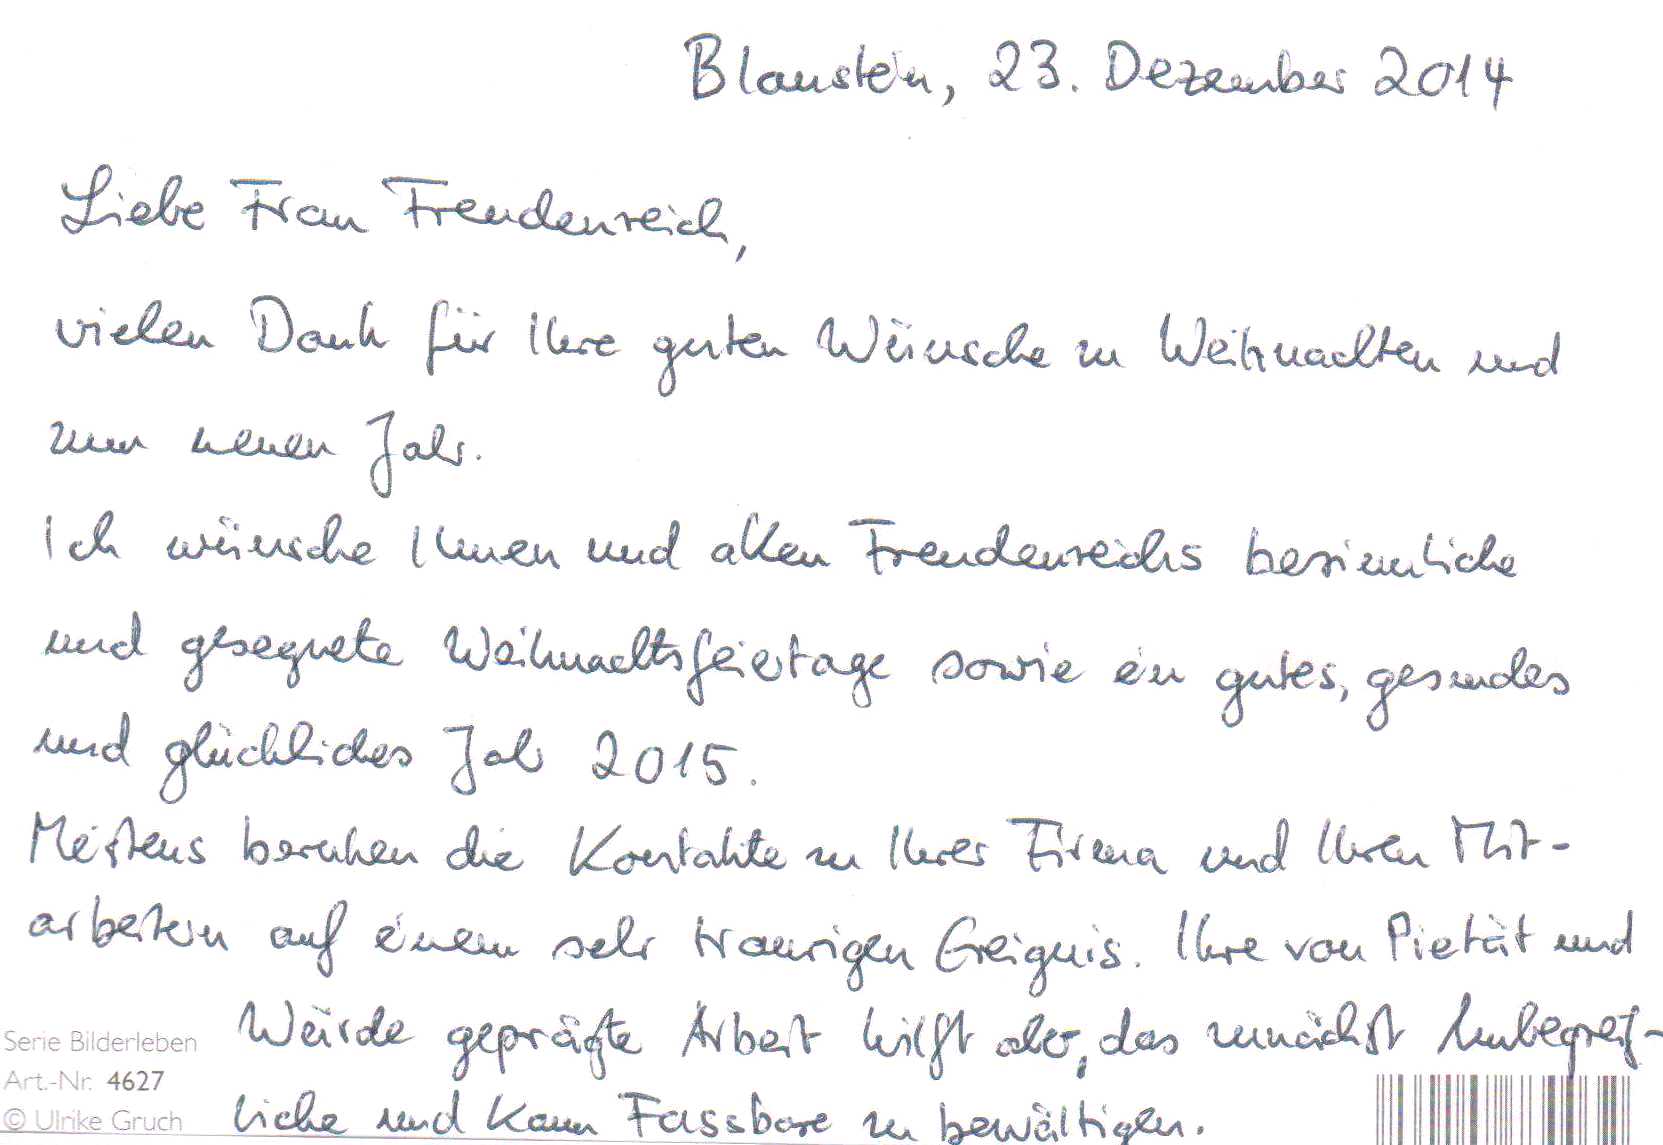 Blaustein, 23. Dezember 2014
Liebe Frau Freudenreich,
vielen Dank für Ihre guten Wünsche zu Weihnachten und
zum neuen Jahr.
Ich wünsche Ihnen und allen Freudenreichs besinnliche
und gesegnete Weihnachtsfeiertage sowie ein gutes, gesundes
und glückliches Jahr 2015.
Meistens beruhen die Kontakte zu Ihrer Firma und Ihren Mit-
arbeitern auf einem sehr traurigen Ereignis. Ihre von Pietät und
Würde geprägte Arbeit hilft aber, das zunächst Unbegreif-
liche und kaum Fassbare zu bewältigen.
Serie Bilderleben
Art.-Nr. 4627
© Ulrike Gruch